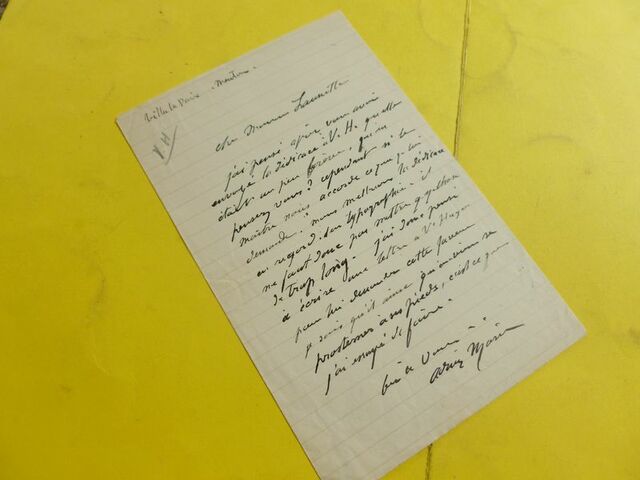 Villa la Paix - Menton -
V H
cher Monsieur Launette
j'ai pensé après vous avoir
envoyé la dédicace à V. H. qu'elle
était un peu brève, qu'en
pensez vous? cependant si le
maître nous accorde ce que je lui
demande, nous mettrons la dédicace
en regard, en typographie - il
ne faut donc pas mettre quelque chose
de trop long. j'ai donc pensé
à écrire une lettre à V. Hugo
pour lui demander cette faveur
je sais qu'il aime qu'on se
prosterne à ses pieds, c'est ce que
j'ai essayé de faire.
bien à vous
Adrien Marie